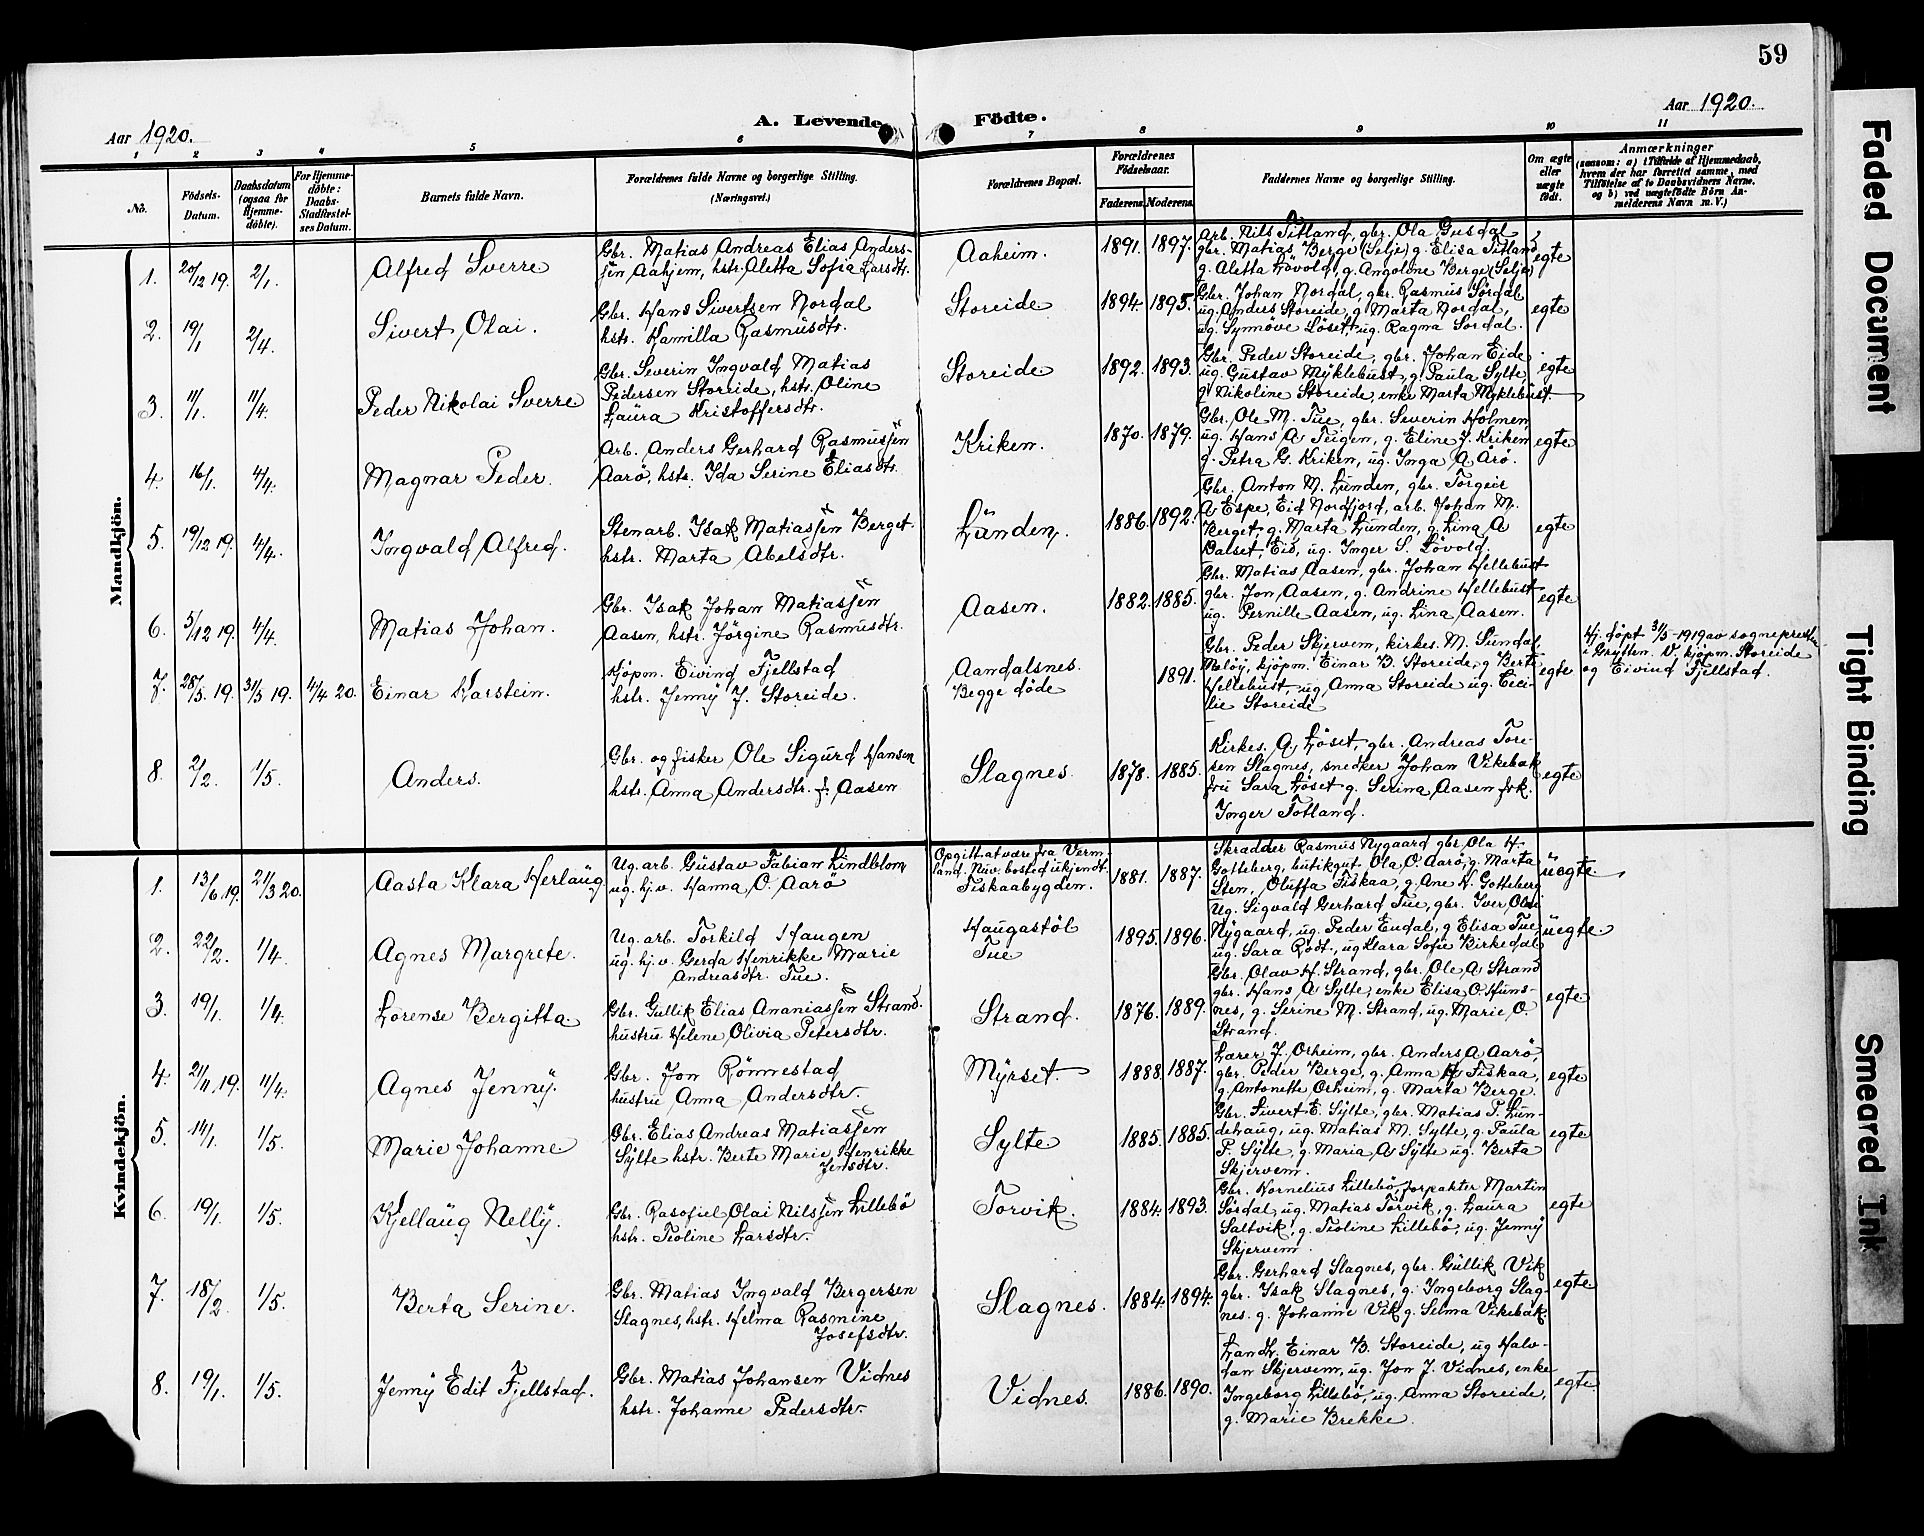 59
Aar 1920.
A. Levende Födte.
Aar 1920.
1 2 3 4 5 6 7 8 9 10 11
No.
Födsels-Datum.
Daabsdatum (ogsaa for Hjemme-döbte).
For Hjemme-döbte: Daabs-Stadfæstel-ses Datum.
Barnets fulde Navn.
Forældrenes fulde Navne og borgerlige Stilling.
(Næringsvei.)
Forældrenes Bopæl.
Forældrenes Födselsaar.
Faderens. Moderens.
Faddernes Navne og borgerlige Stilling.
Om ægte eller uægte födt.
Anmærkninger
(saasom: a) i Tilfælde af Hjemmedaab,
hvem der har forrettet samme, med
Tilföielse af to Daabsvidners Navne,
og b) ved uægtefödte Börn An-
melderens Navn m. V.)
Mandkjön.
1. 20/12 19. 2/1. Alfred Sverre
Gbr. Matias Andreas Elias Anders-
sen Aahjem, hstr. Aletta Sofia Larsdtr.
Aaheim. 1891. 1897.
Arb. Nils Titland, gbr. Ola Gusdal,
gbr. Matias Berge (Selje) g. Elisa Titland,
g. Aletta Lövold, g. Angoline Berge (Selje)
egte
2. 19/1 2/4. Sivert Olai.
Gbr. Hans Sivertsen Nordal
hstr. Kamilla Rasmusdtr.
Storeide 1894. 1895.
Gbr. Johan Nordal, gbr. Rasmus Sördal
ug. Anders Storeide, g. Marta Nordal,
ug. Synnöve Löset, ug. Ragna Sordal.
egte
3. 11/1. 11/4. Peder Nikolai Sverre
Gbr. Severin Ingvald Matias
Pedersen Storeide, hstr. Oline
Laura Kristoffersdtr.
Storeide 1892. 1893.
Gbr. Peder Storeide, gbr. Johan Eide
ug. Gustav Myklebust, g. Paula Sylte
g. Nikoline Storeide, enke Marta Myklebust
egte
4. 16/1. 4/4. Magnar Peder.
Arb. Anders Gerhard Rasmussen
Aarö, hstr. Ida Serine Eliasdtr.
Kriken. 1870. 1879.
Gbr. Ole M. Tue, gbr. Severin Holmen
ug. Hans A Teigen, g. Eline J. Kriken
g. Petra G. Kriken, ug. Inga A Arö.
egte
5. 19/12 19. 4/4. Ingvald Alfred.
Stenarb. Isak Matiassen Berget
hstr. Marta Abelsdtr.
Lunden. 1886. 1892.
Gbr. Anton M. Lunden, gbr. Torgeir
A Espe, Eid Nordfjord, arb. Johan M.
Berget, g. Marta Lunden, g. Lina A
Dalset, Eid, ug. Inger S. Lövold.
egte
6. 5/12 19. 4/4. Matias Johan.
Gbr. Isak Johan Matiassen
Aasen, hstr. Jörgine Rasmusdtr.
Aasen. 1882. 1885.
Gbr. Matias Aasen, gbr. Johan Hellebust
gbr. Jon Aasen, g. Andrine Hellebust
ug. Pernille Aasen, ug. Lina Aasen.
egte
7. 28/5. 19. 31/5 19. 4/4 20. Einar Karstein.
Kjöpm. Eivind Fjellstad
hstr. Jenny J. Storeide.
Aandalsnes.
Begge döde
1891.
Gbr. Peder Skjervem, kirkes. M. Sundal
Meløy, kjöpm. Einar B. Storeide, g Berte
Hellebust, ug. Anna Storeide ug. Ceci-
lie Storeide
egte
Hj. döpt 31/5-1919 av sognepresten
i Grytten. V. kjöpm. Storeide
og Eivind Fjellstad.
8. 2/2. 1/5. Anders.
Gbr. og fisker Ole Sigurd Hansen
hstr. Anna Andersdtr. f. Aasen
Slagnes. 1878. 1885.
Kirkes. A. Löset, gbr. Andreas Tore-
sen Slagnes, snedker Johan Vikebak
fru Sara Löset g. Serina Aasen frk.
Inger Totland.
egte
Kvindekjön.
1. 13/6. 19. 21/3 20. Aasta Klara Herlaug
Ug. arb. Gustav Fabian Lindblom,
ug. hj. v. Hanna O. Aarö
Opgitt at være fra Verm-
land. Nuv. bosted ukjendt.
Fiskaabygden.
1881. 1887.
Skrædder Rasmus Nygaard gbr. Ola H.
Gotteberg, butikgut Ola O. Aarö, g. Marta
Sten, Oluffa Fiskaa, g. Ane H. Gotteberg
uegte.
2. 22/2. 1/4. Agnes Margrete.
Ug. arb. Torkild Haugen
ug. hj. v. Gerda Henrikke Marie
Andreasdtr. Tue.
Haugastöl
Tue
1895. 1896.
Ug. Sigvald Gerhard Tue, gbr. Iver Olai
Nygaard, ug. Peder Endal, g Elisa Tue
ug. Sara Rödt, ug Klara Sofie Birkedal
uegte
3. 19/1. 1/4. Lorense Bergitta
Gbr. Gullik Elias Ananiassen Strand.
hustru Helene Olivia Petersdtr.
Strand. 1876. 1889.
Gbr. Olav H. Strand, gbr. Ole A Strand
gbr. Hans A Sylte, enke Elisa O. Huns-
nes, g. Serine M. Strand, ug. Marie O.
Strand.
egte
4. 21/11. 19. 11/4. Agnes Jenny.
Gbr. Jon Rönnestad
hustru Anna Andersdtr.
Myrset. 1888. 1887.
Lærer J. Orheim, gbr. Anders A Aarö,
gbr. Peder Berge, g. Anna H Fiskaa,
g. Antonette Orheim, g. Marta Berge.
egte
5. 14/1. 1/5. Marie Johanne
Gbr. Elias Andreas Matiassen
Sylte hstr. Berte Marie Henrikke
Jensdtr.
Sylte 1885. 1885.
Gbr. Sivert E. Sylte, gbr. Matias P. Lun-
dehaug, ug. Matias M. Sylte, g. Paula
P. Sylte, g. Maria A Sylte ug. Berta
Skjervem.
egte
6. 19/1. 1/5. Kjellaug Nelly.
Gbr. Rasofiel Olai Nilssen Lillebö
hstr. Tioline Larsdtr.
Torvik. 1884. 1893.
Gbr. Kornelius Lillebö, forpakter Martin
Sördal, ug. Matias Torvik, g. Laura
Saltvik, g. Tioline Lillebö, ug. Jenny
Skjervem.
egte
7. 18/2 1/5. Berta Serine.
Gbr. Matias Ingvald Bergersen
Slagnes, hstr. Helma Rasmine
Josefsdtr.
Slagnes. 1884. 1894.
Gbr. Gerhard Slagnes, gbr. Gullik Vik
gbr. Isak Slagnes, g. Ingeborg Slag-
nes. g. Johanne Vik g. Selma Vikebak
egte
8. 19/1. 1/5. Jenny Edit Fjellstad.
Gbr. Matias Johansen Vidnes
hstr. Johanne Pedersdtr.
Vidnes. 1886. 1890.
Landh. Einar B. Storeide, ug Halv-
dan Skjervem, ug. Jon J. Vidnes, enke
Ingeborg Lillebö, ug. Anna Storeide,
g. Marie Brekke.
egte
Faded Document
Tight Binding
Smeared Ink